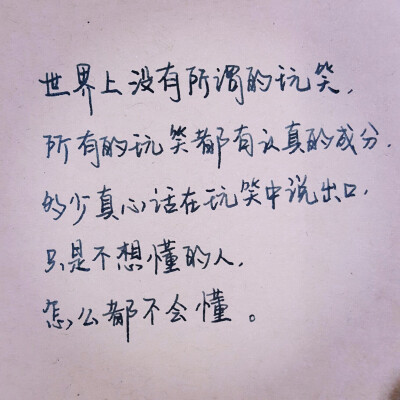 世界上没有所谓的玩笑，
所有的玩笑都有认真的成分，
多少真心话在玩笑中说出口，
只是不想懂的人，
怎么都不会懂。